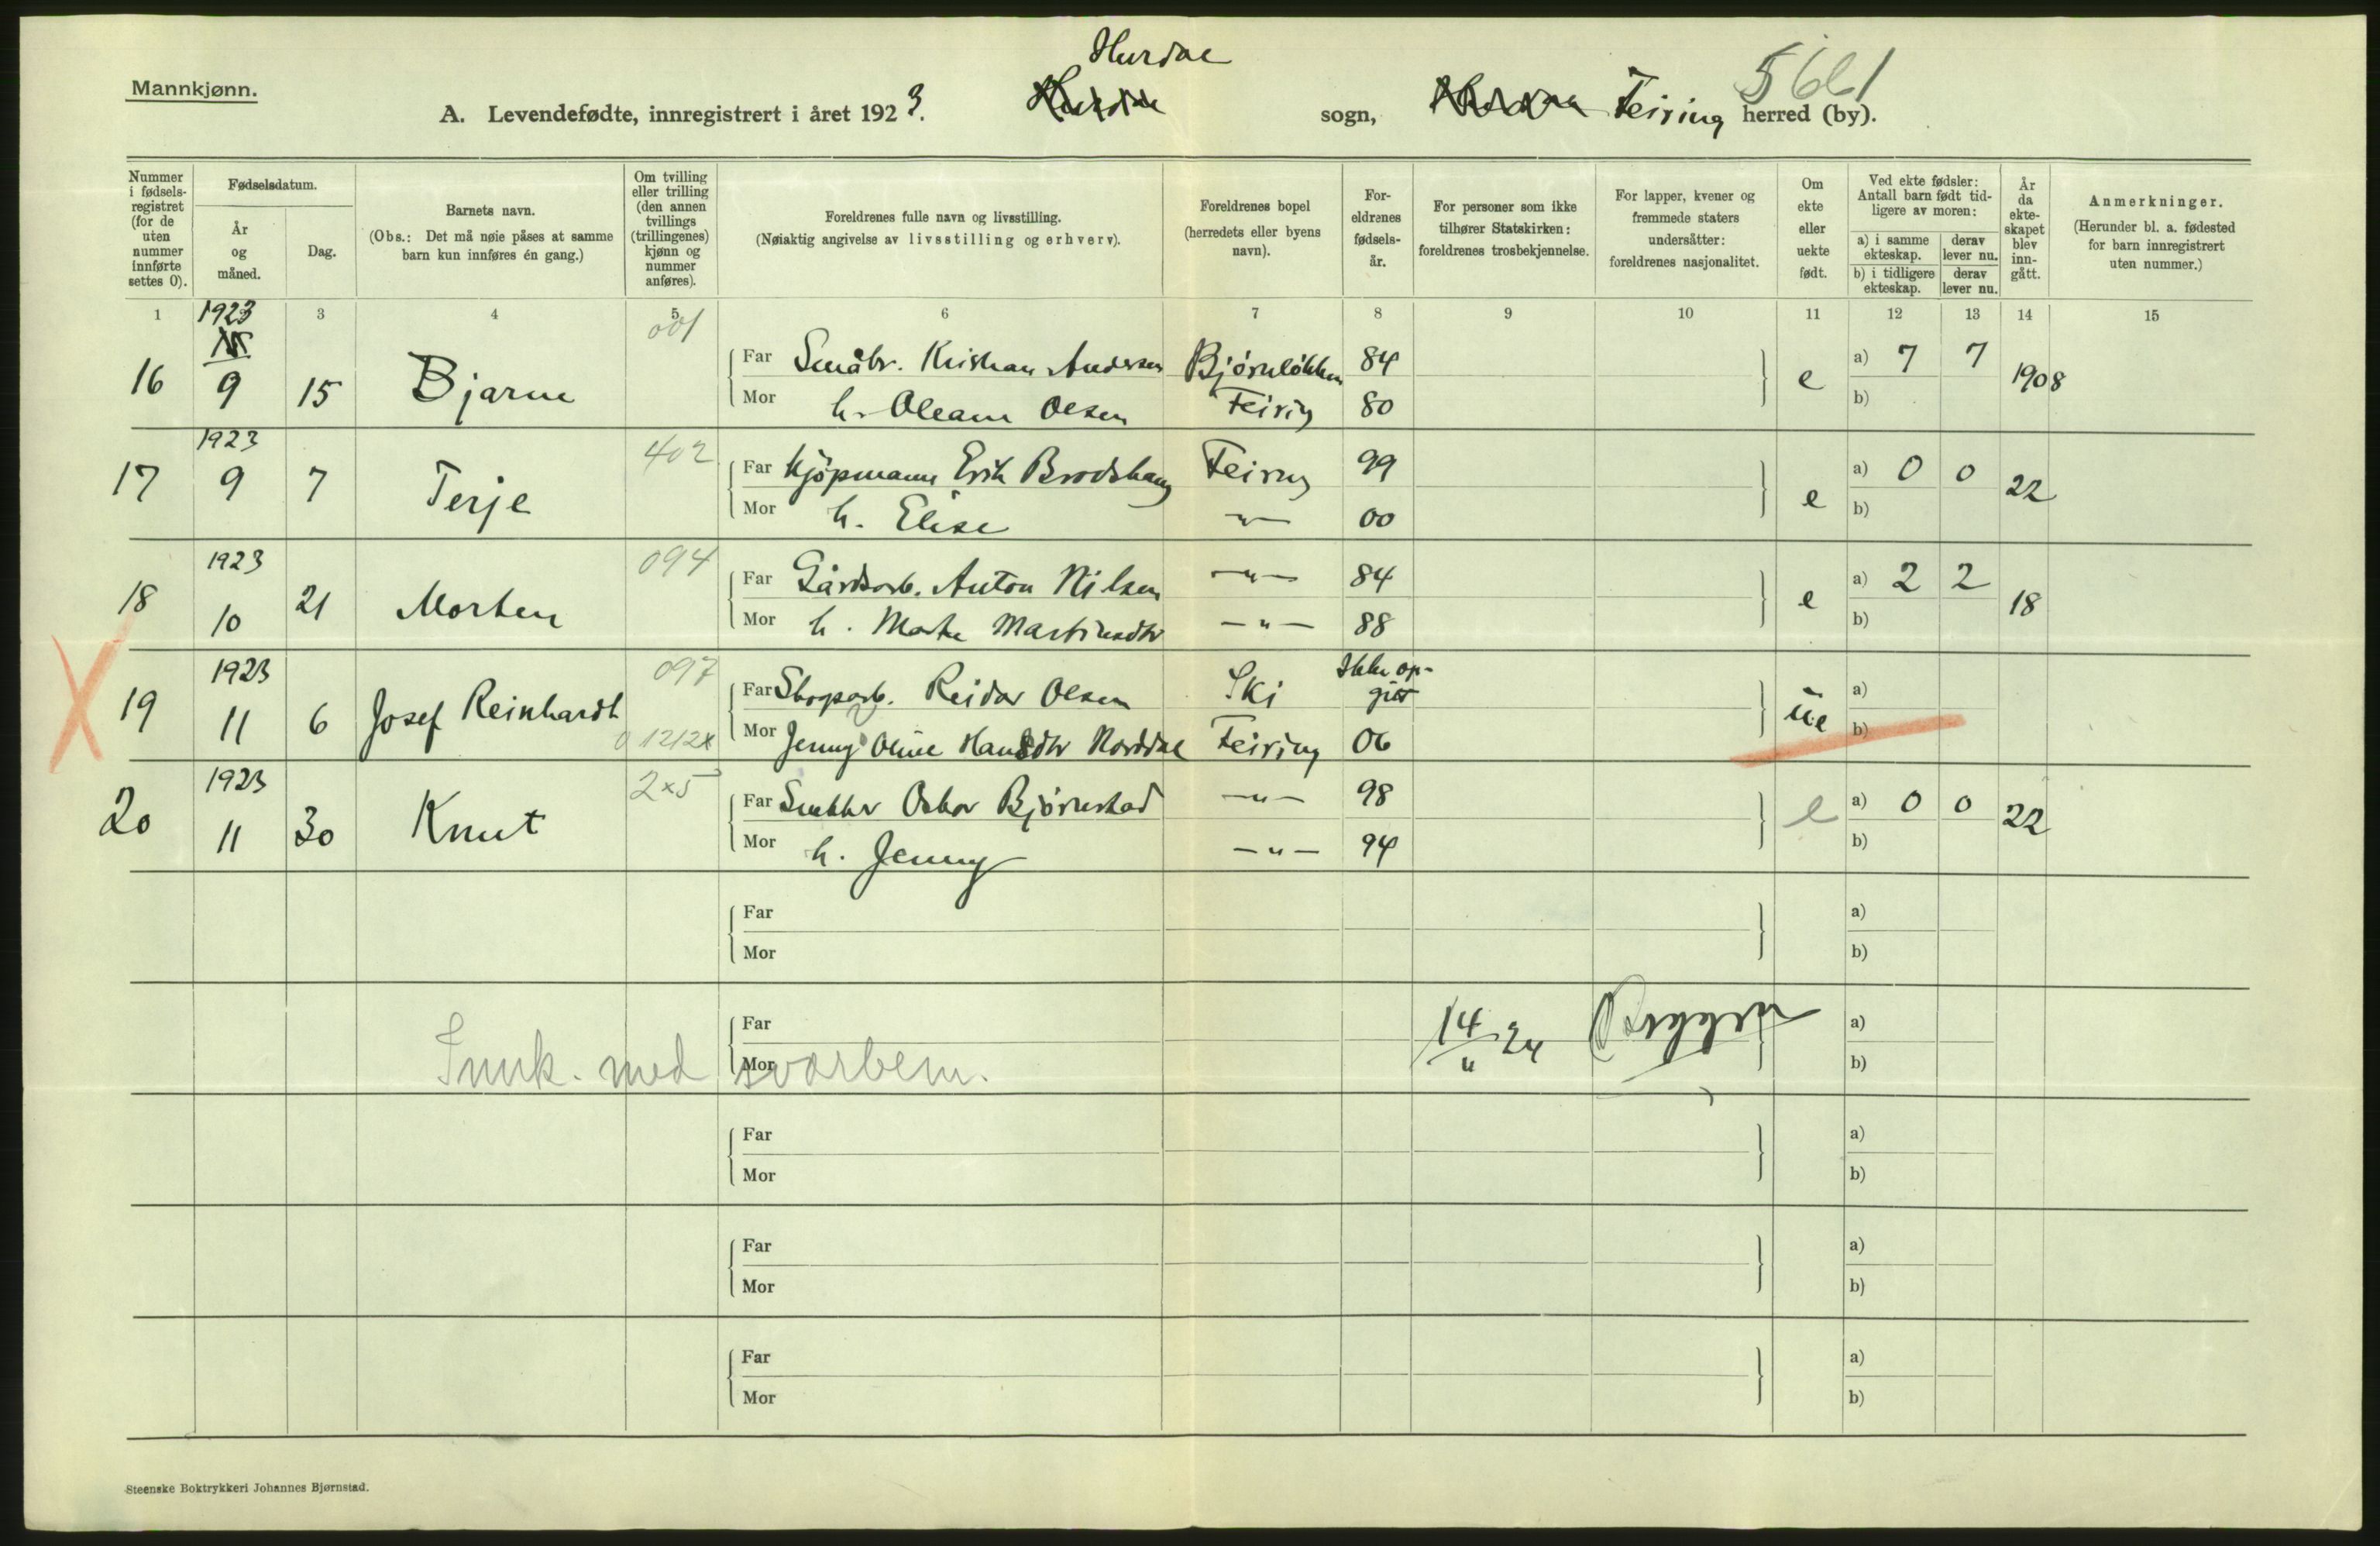 Hurdal
5661
Mannkjønn.
A. Levendefødte, innregistrert i året 1923. sogn, Feiring herred (by).
Nummer i fødsels-registret (for de uten nummer innførte settes 0).
Fødselsdatum.
År og måned.
Dag.
Barnets navn.
(Obs.: Det må nøie påses at samme barn kun innføres én gang.)
Om tvilling eller trilling (den annen tvillings (trillingenes) kjønn og nummer anføres).
Foreldrenes fulle navn og livsstilling.
(Nøiaktig angivelse av livsstilling og erhverv).
Foreldrenes bopel (herredets eller byens navn).
For-eldrenes fødsels-år.
For personer som ikke tilhører Statskirken: foreldrenes trosbekjennelse.
For lapper, kvener og fremmede staters undersåtter: foreldrenes nasjonalitet.
Om ekte eller uekte født.
Ved ekte fødsler: Antall barn født tid-ligere av moren:
a) i samme ekteskap. derav lever nu.
b) i tidligere ekteskap. derav lever nu.
År da ekte-skapet blev inn-gått.
Anmerkninger.
(Herunder bl. a. fødested for barn innregistrert uten nummer.)
1 3 4 5 6 7 8 9 10 11 12 13 14 15
1923 001
16 9 15 Bjarne Far Småbr. Kristian Andersen Bjørnløkken 84 e a) 7 7 1908
Mor h. Oleane Olsen Feiring 80 b)
1923 402
17 9 7 Terje Far Kjøpmann Erik Brodshaug Feiring 99 e a) 0 0 22
Mor h. Elise —"— 00 b)
1923 094
18 10 21 Morten Far Gårdsarb. Anton Nilsen —"— 84 e a) 2 2 18
Mor h. Marte Martinsdtr —"— 88 b)
1923 097
19 11 6 Josef Reinhardt Far Skogsarb. Reidar Olsen Ski Ikke op-gitt ue a)
01212x Mor Jenny Oline Hansdtr Norddal Feiring 06 b)
1923 2x5
20 11 30 Knut Far Snekker Oskar Bjørnstad —"— 98 e a) 0 0 22
Mor h. Jenny —"— 94 b)
Far a)
Mor b)
Far 14/11 24 a)
med Mor b)
Far a)
Mor b)
Far a)
Mor b)
Far a)
Mor b)
Steenske Boktrykkeri Johannes Bjørnstad.